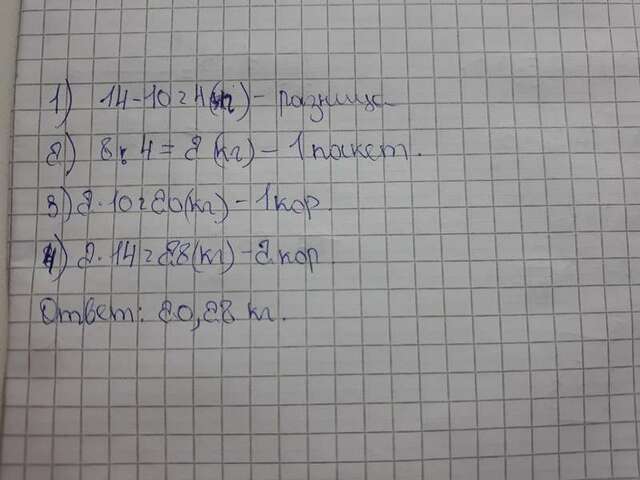 1) 14-10=4(кг) - разница
2) 8:4=2(кг) - 1 пакет.
3) 2·10=20(кг) - 1 кор
4) 2·14=28(кг) - 2 кор
Ответ: 20,28 кг.